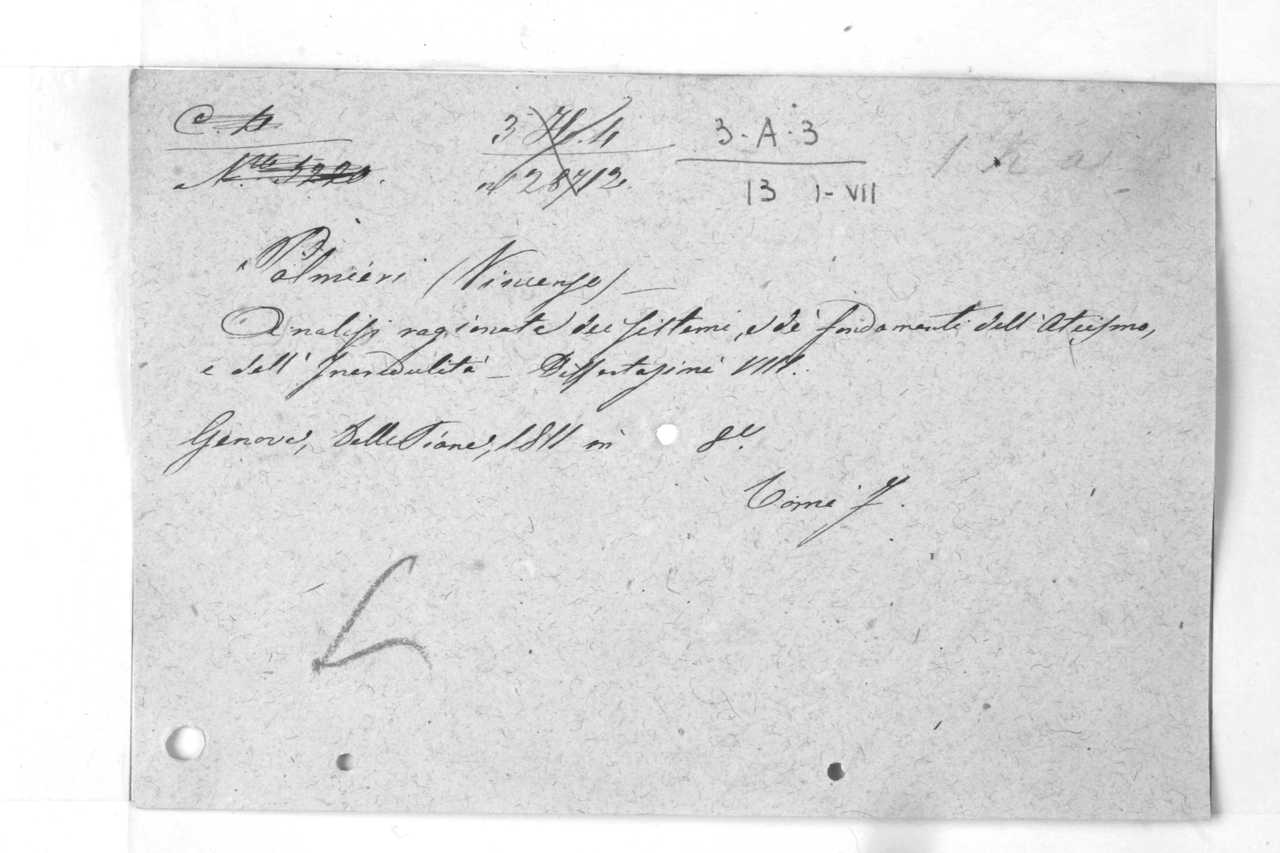 C. b 3. 76. 4 3 - A - 3
N.ro 5220. n 28712. 13 I - VII
Palmieri (Vincenzo) —
Analisi ragionata dei sistemi, e dé fondamenti dell'Ateismo,
e dell'Incredulità — Dissertazioni VIII.
Genova, Delle Piane, 1811 in 8.º
Tomi 7.